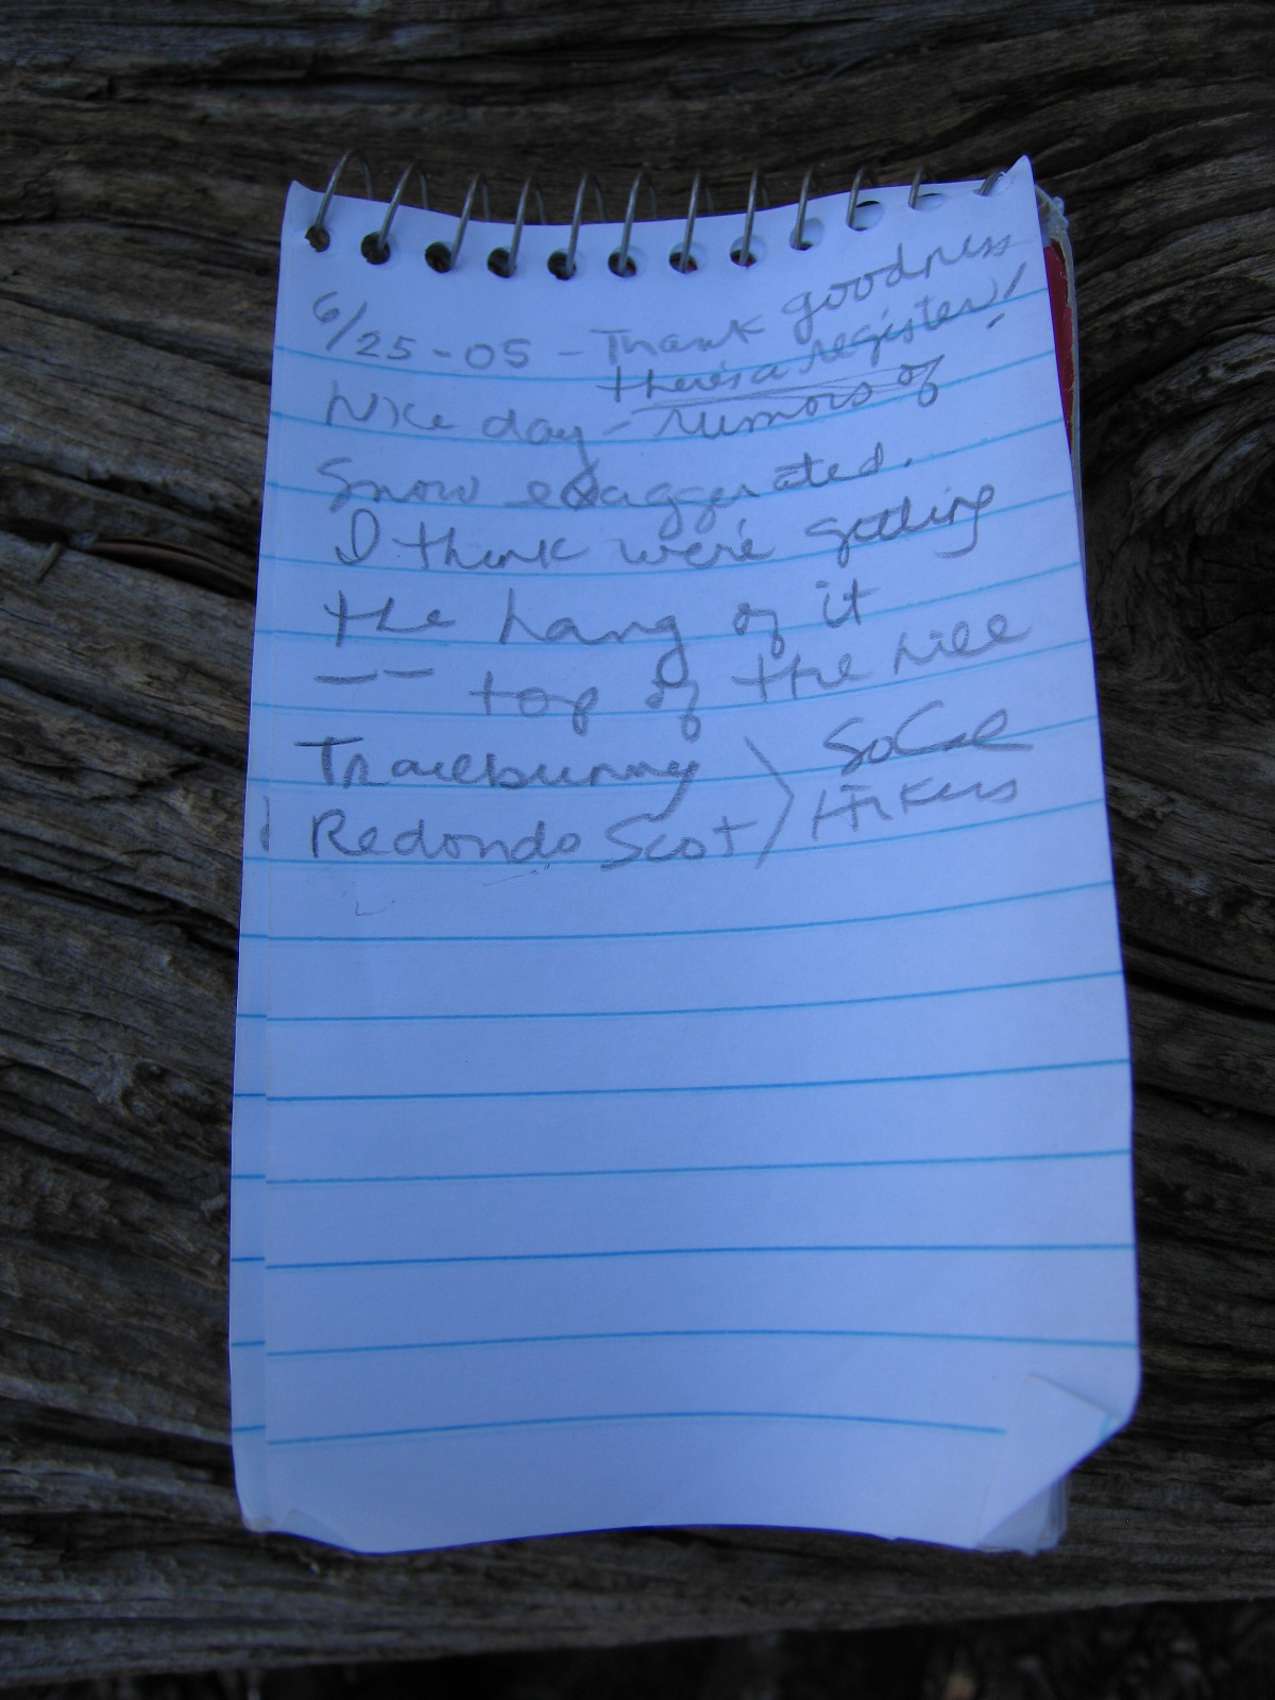 6/25-05 - Thank goodness
there's a register!
Nice day - rumors of
Snow exaggerated.
I think we're getting
the hang of it
-- top of the hill
Trailbunny
Redondo Scot
SoCal
Hikers